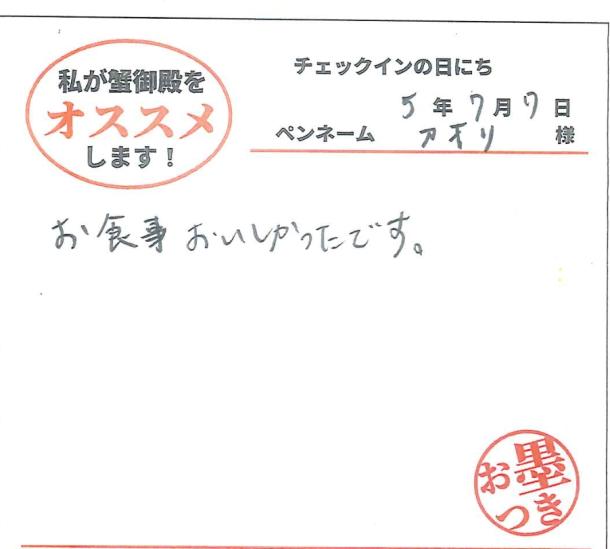 私が蟹御殿を
オススメ
します！
チェックインの日にち
5年7月7日
ペンネーム アオリ 様
お食事おいしかったです。
お墨
つき